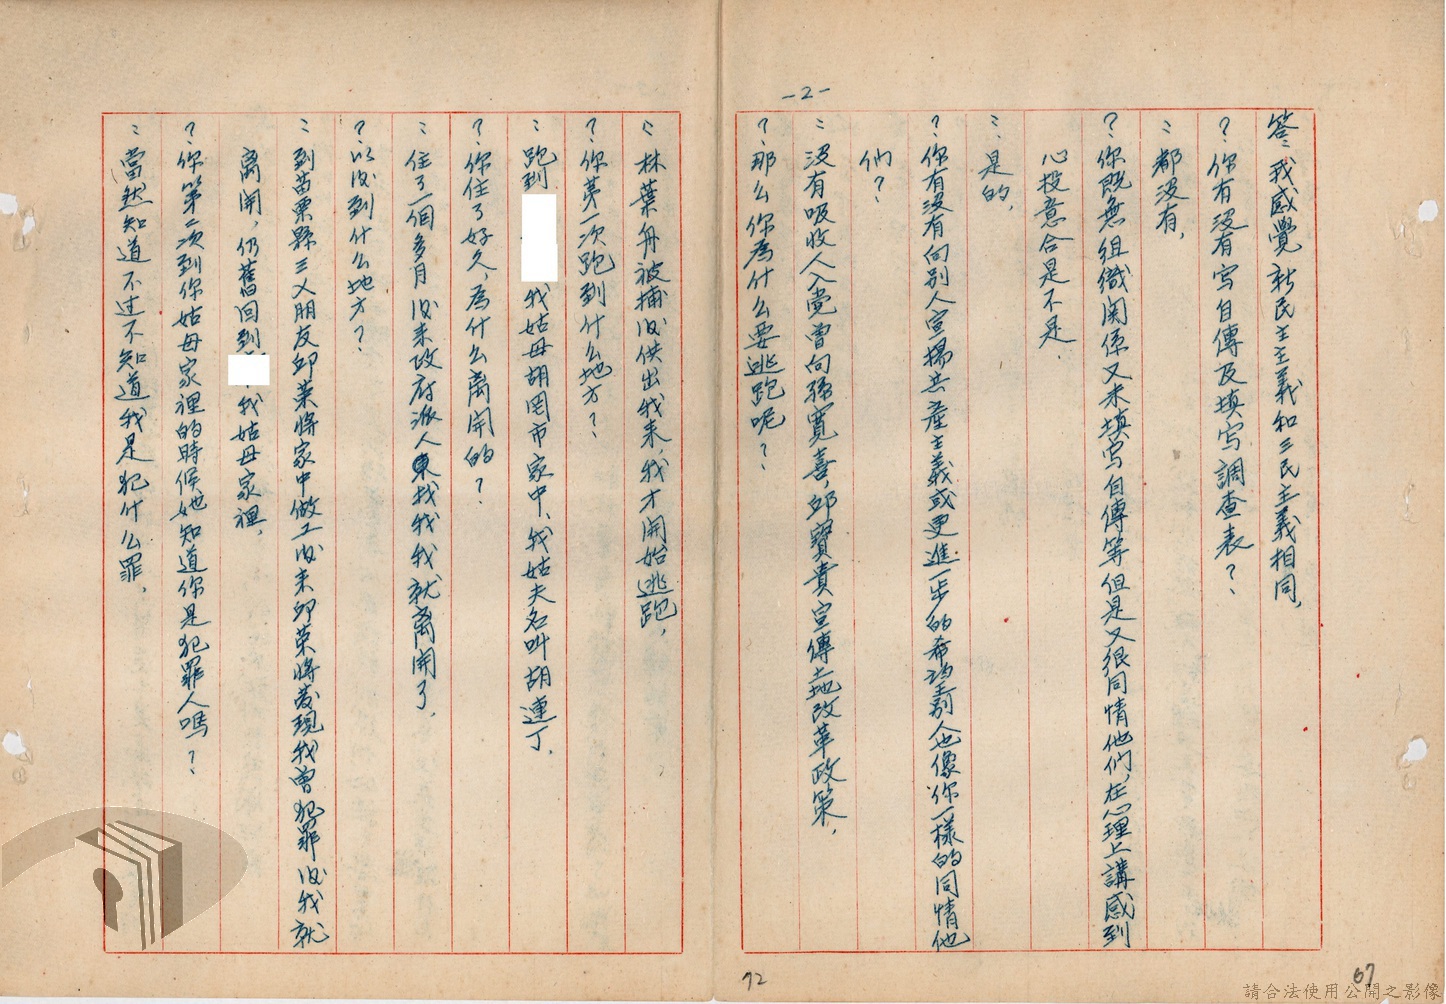 -2-
答:我感覺新民主主義和三民主義相同,
?你有沒有写自傳及填写調查表?
:都沒有,
?你既無組織関係又未填写自傳等但是又很同情他們,在心理上講感到
心投意合是不是.
:是的,
?你有沒有向別人宣揚共產主義或更進一步的希望別人也像你一樣的同情他
們?
:沒有吸收人入党曾向孫寬喜,邱寶貴宣傳土地改革政策,
?那么你為什么要逃跑呢?
:林葉舟被捕后供出我来,我才開始逃跑,
?你第一次跑到什么地方?
:跑到 我姑母胡罔市家中,我姑夫名叫胡連丁,
?你住了好久,為什么离開的?
:住了一個多月后来政府派人東找我我就离開了,
?以后到什么地方?
:到苗栗縣三义朋友邱荣將家中做工后来邱荣將發現我曾犯罪后我就
离開,仍舊回到 我姑母家裡,
?你第二次到你姑母家裡的時候她知道你是犯罪人嗎?
:當然知道不过不知道我是犯什么罪,
72
67
請合法使用公開之影像